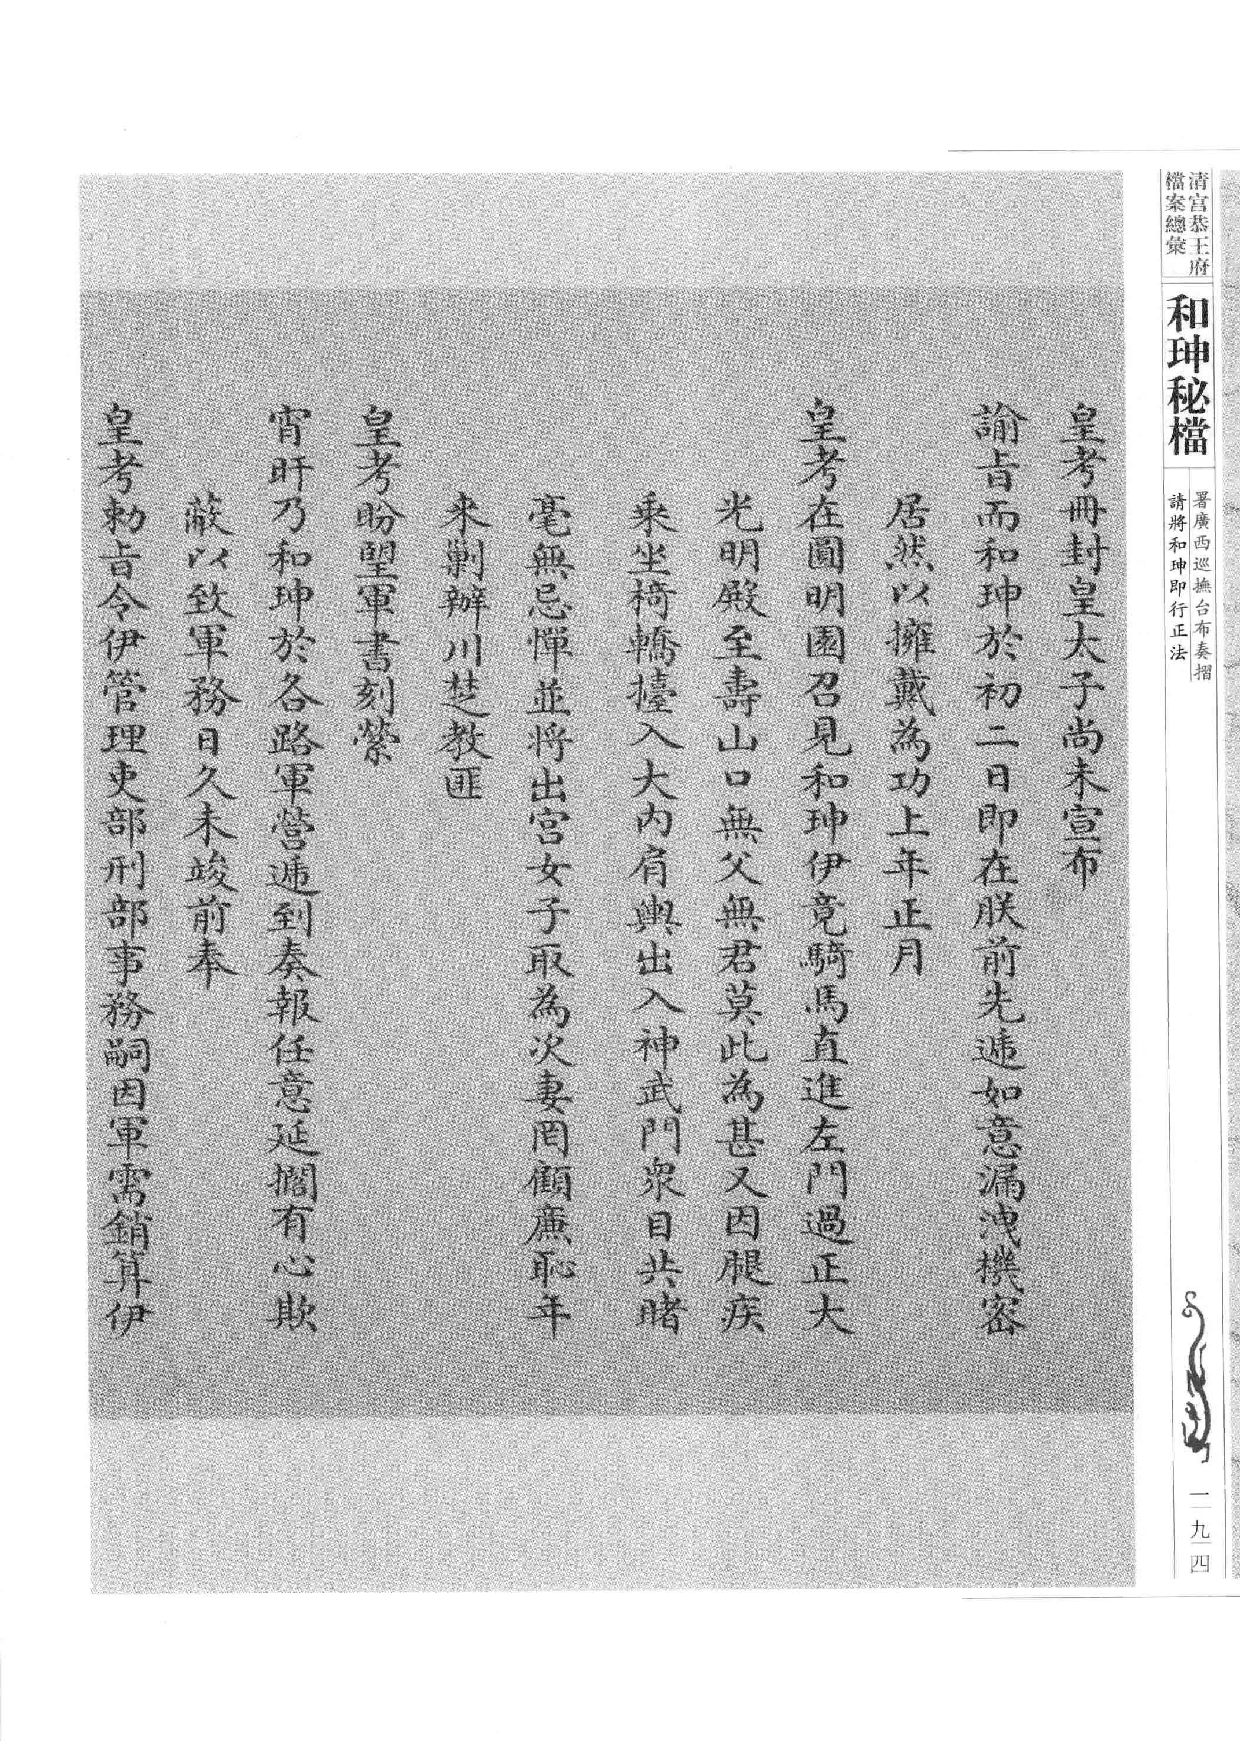 清宮恭王府
檔案總彙
和珅秘檔
署廣西巡撫台布奏摺
請將和珅即行正法
一九四
皇考冊封皇太子尚未宣布
諭旨而和珅於初二日即在朕前先遞如意漏洩機密
居然以擁戴為功上年正月
皇考在圓明園召見和珅伊竟騎馬直進左門過正大
光明殿至壽山口無父無君莫此為甚又因腿疾
乘坐椅轎擡入大內肩輿出入神武門衆目共睹
毫無忌憚並將出宮女子取為次妻罔顧廉恥年
来剿辦川楚教匪
皇考盼望軍書刻縈
宵旰乃和珅於各路軍營遞到奏報任意延擱有心欺
蔽以致軍務日久未竣前奉
皇考勅旨令伊管理吏部刑部事務嗣因軍需銷算伊